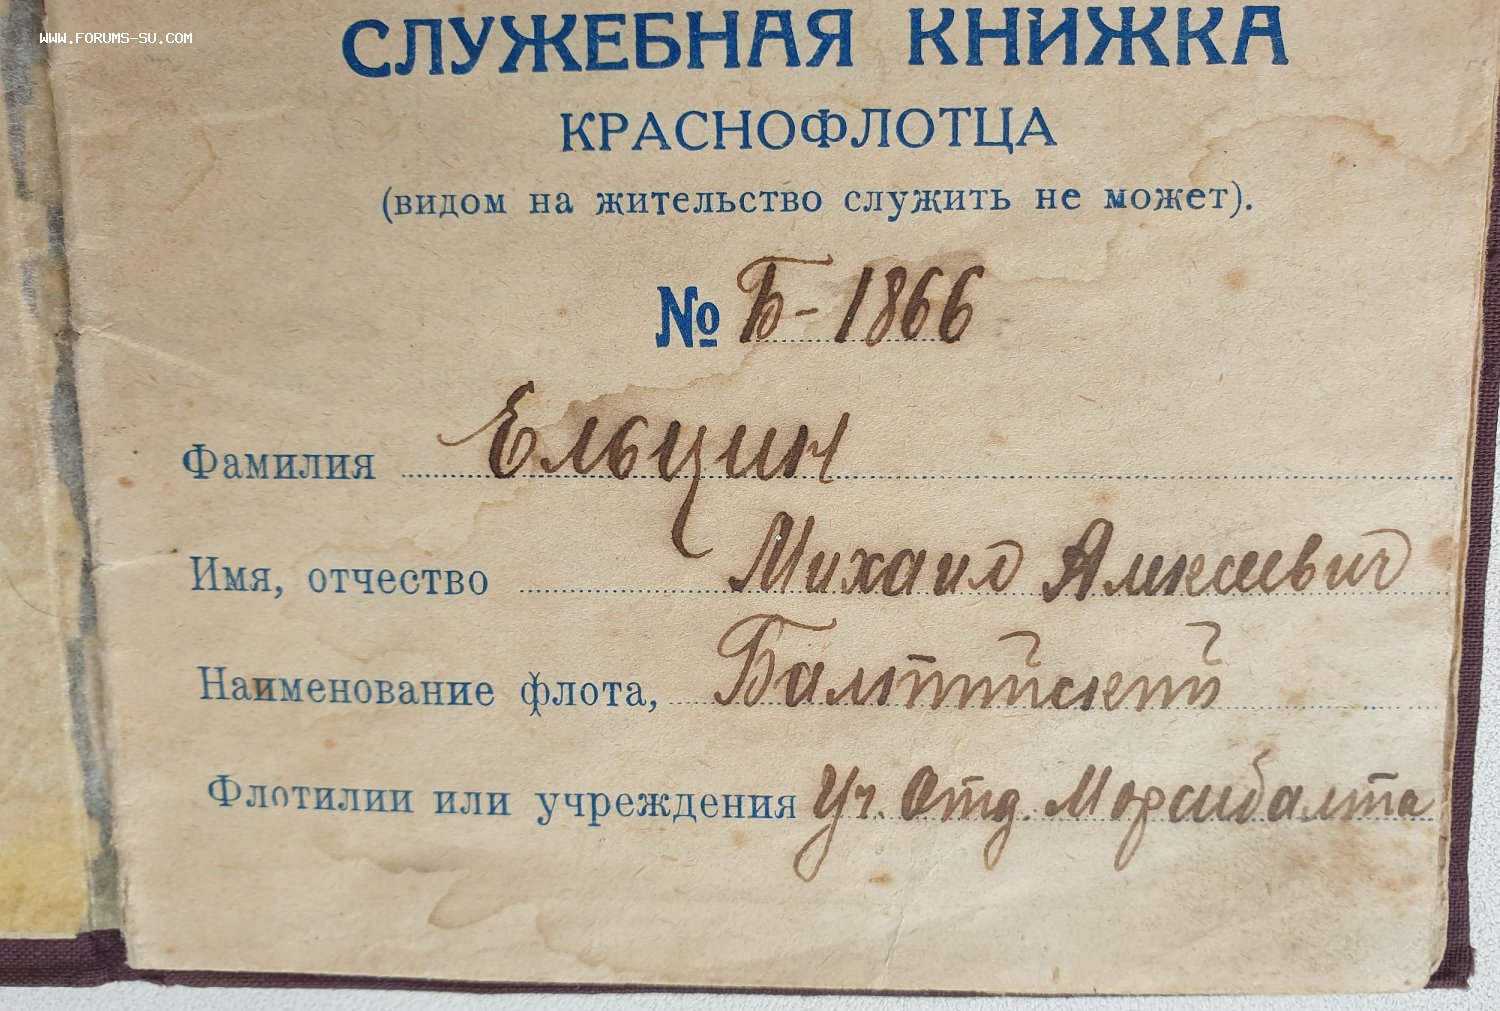 www.forums-su.com
СЛУЖЕБНАЯ КНИЖКА
КРАСНОФЛОТЦА
(видом на жительство служить не может).
№ Б-1866
Фамилия Ельцин
Имя, отчество Михаил Алексеевич
Наименование флота, Балтийский
Флотилии или учреждения Уч. Отд. Морсибалта